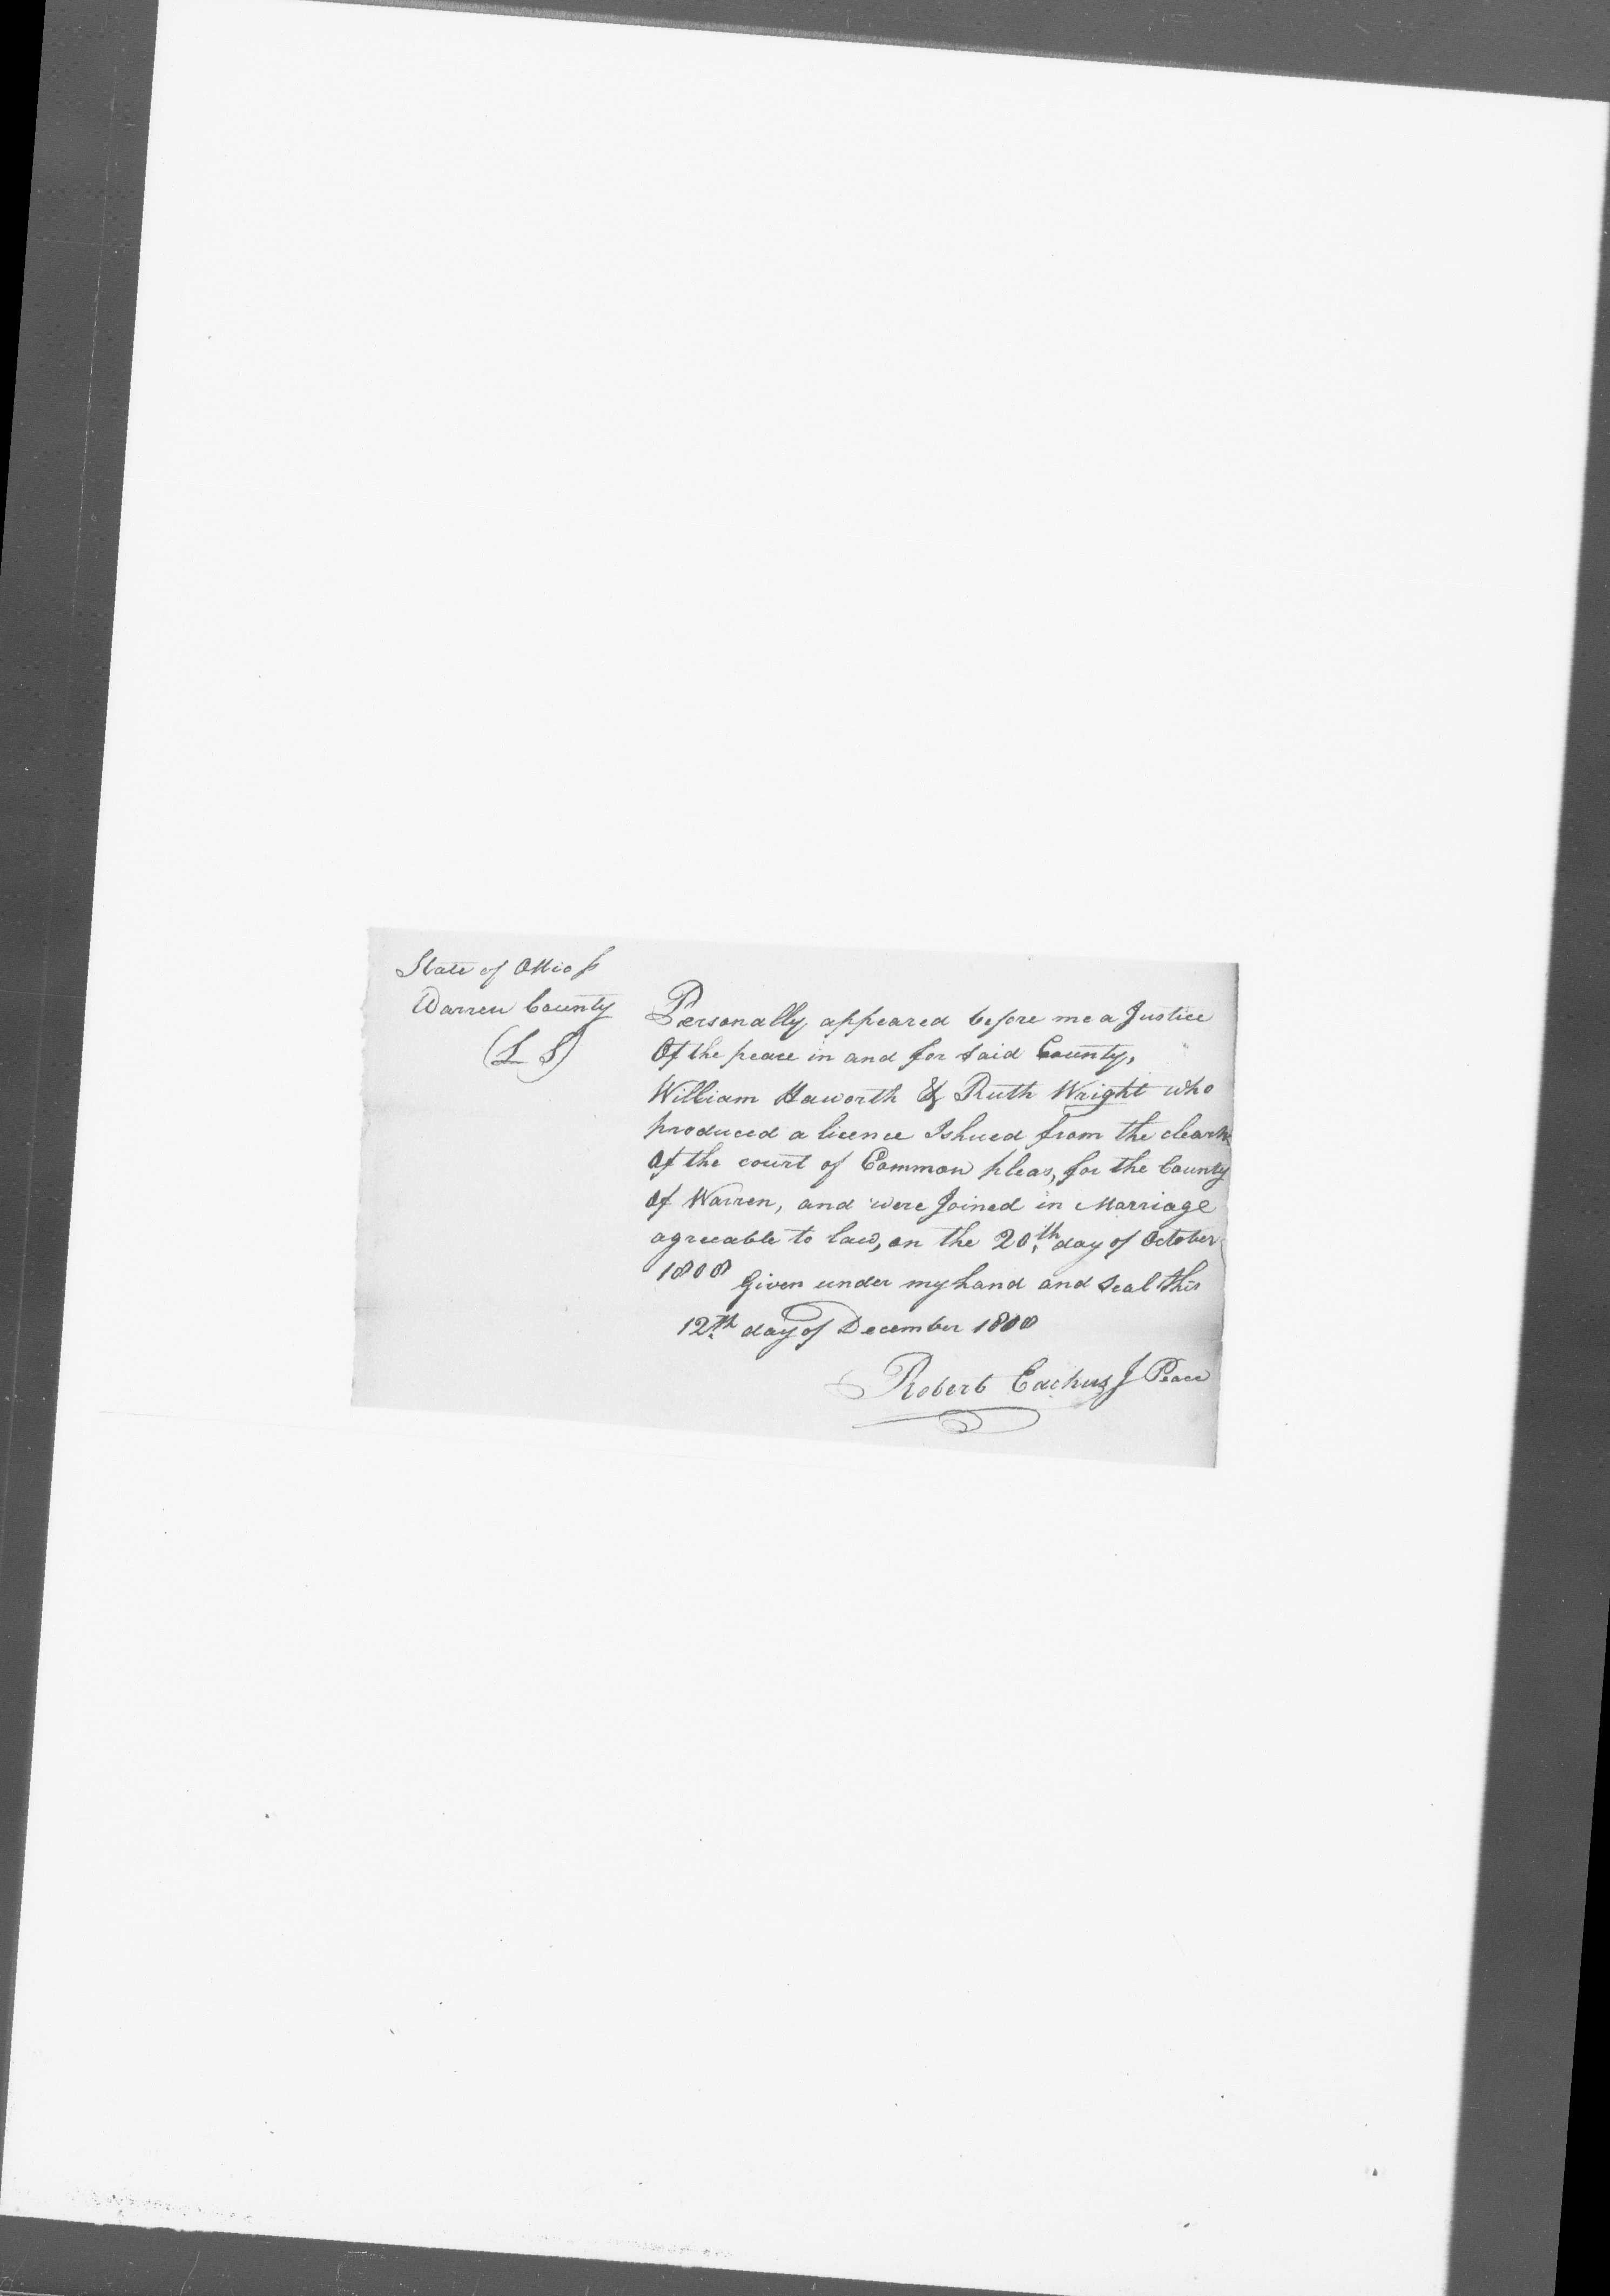 State of Ohio ss
Warren County
(L S)
Personally appeared before me a Justice
Of the peace in and for said County,
William Haworth & Ruth Wright who
produced a licence Ishued from the cleark
Of the court of Common pleas, for the County
Of Warren, and were Joined in Marriage
agreeable to law, on the 20th day of October
1808 Given under my hand and Seal this
12th day of December 1808
Robert Eachus J Peace